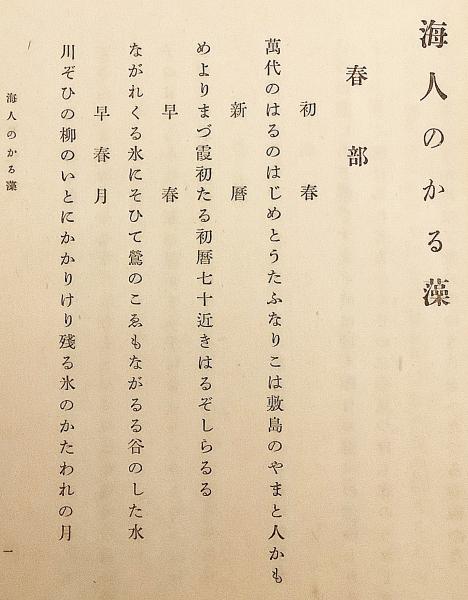 海人のかる藻
春部
初春
萬代のはるのはじめとうたふなりこは敷島のやまと人かも
新暦
めよりまづ霞初たる初暦七十近きはるぞしらるる
早春
ながれくる氷にそひて鶯のこゑもながるる谷のした水
早春月
川ぞひの柳のいとにかかりけり残る氷のかたわれの月
海人のかる藻
一